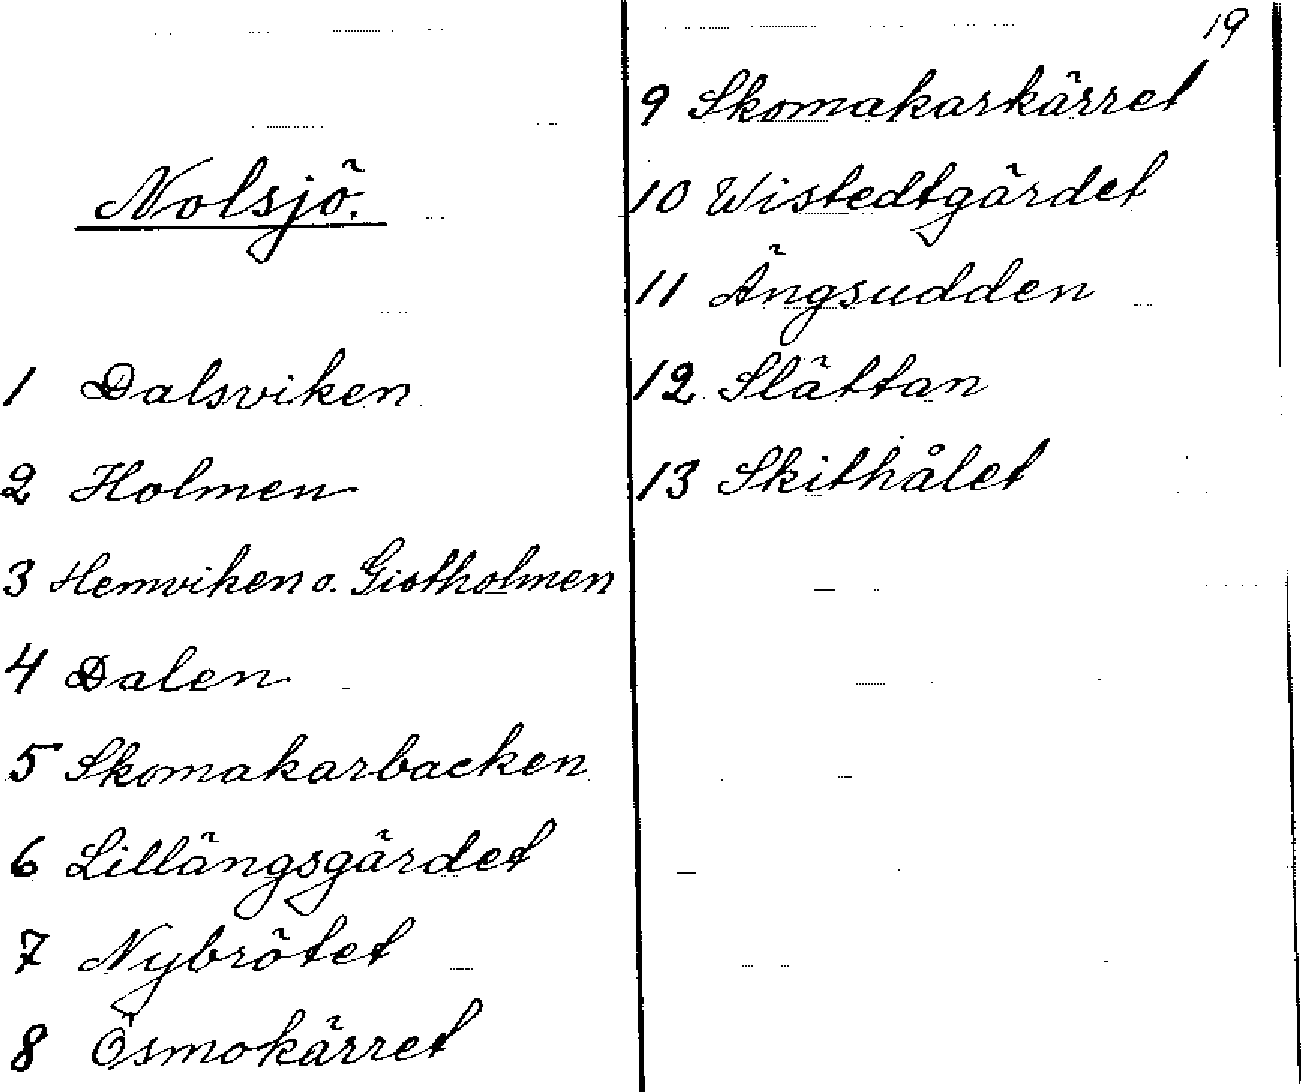 19
Nolsjö.
1 Dalsviken
2 Holmen
3 Hemviken o. Gistholmen
4 Dalen
5 Skomakarbacken
6 Lillängsgärdet
7 Nybrötet
8 Ösmokärret
9 Skomakarkärret
10 Wistedtgärdet
11 Ängsudden
12 Slättan
13 Skithålet